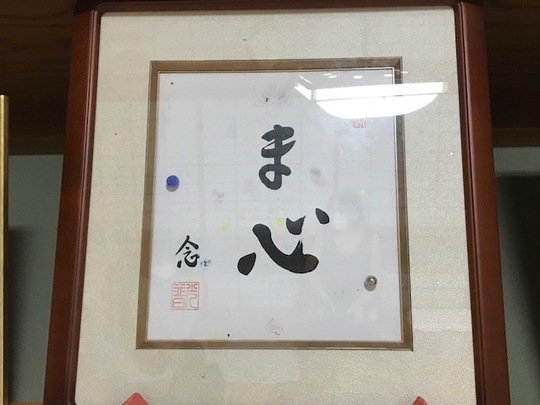 ま心
念